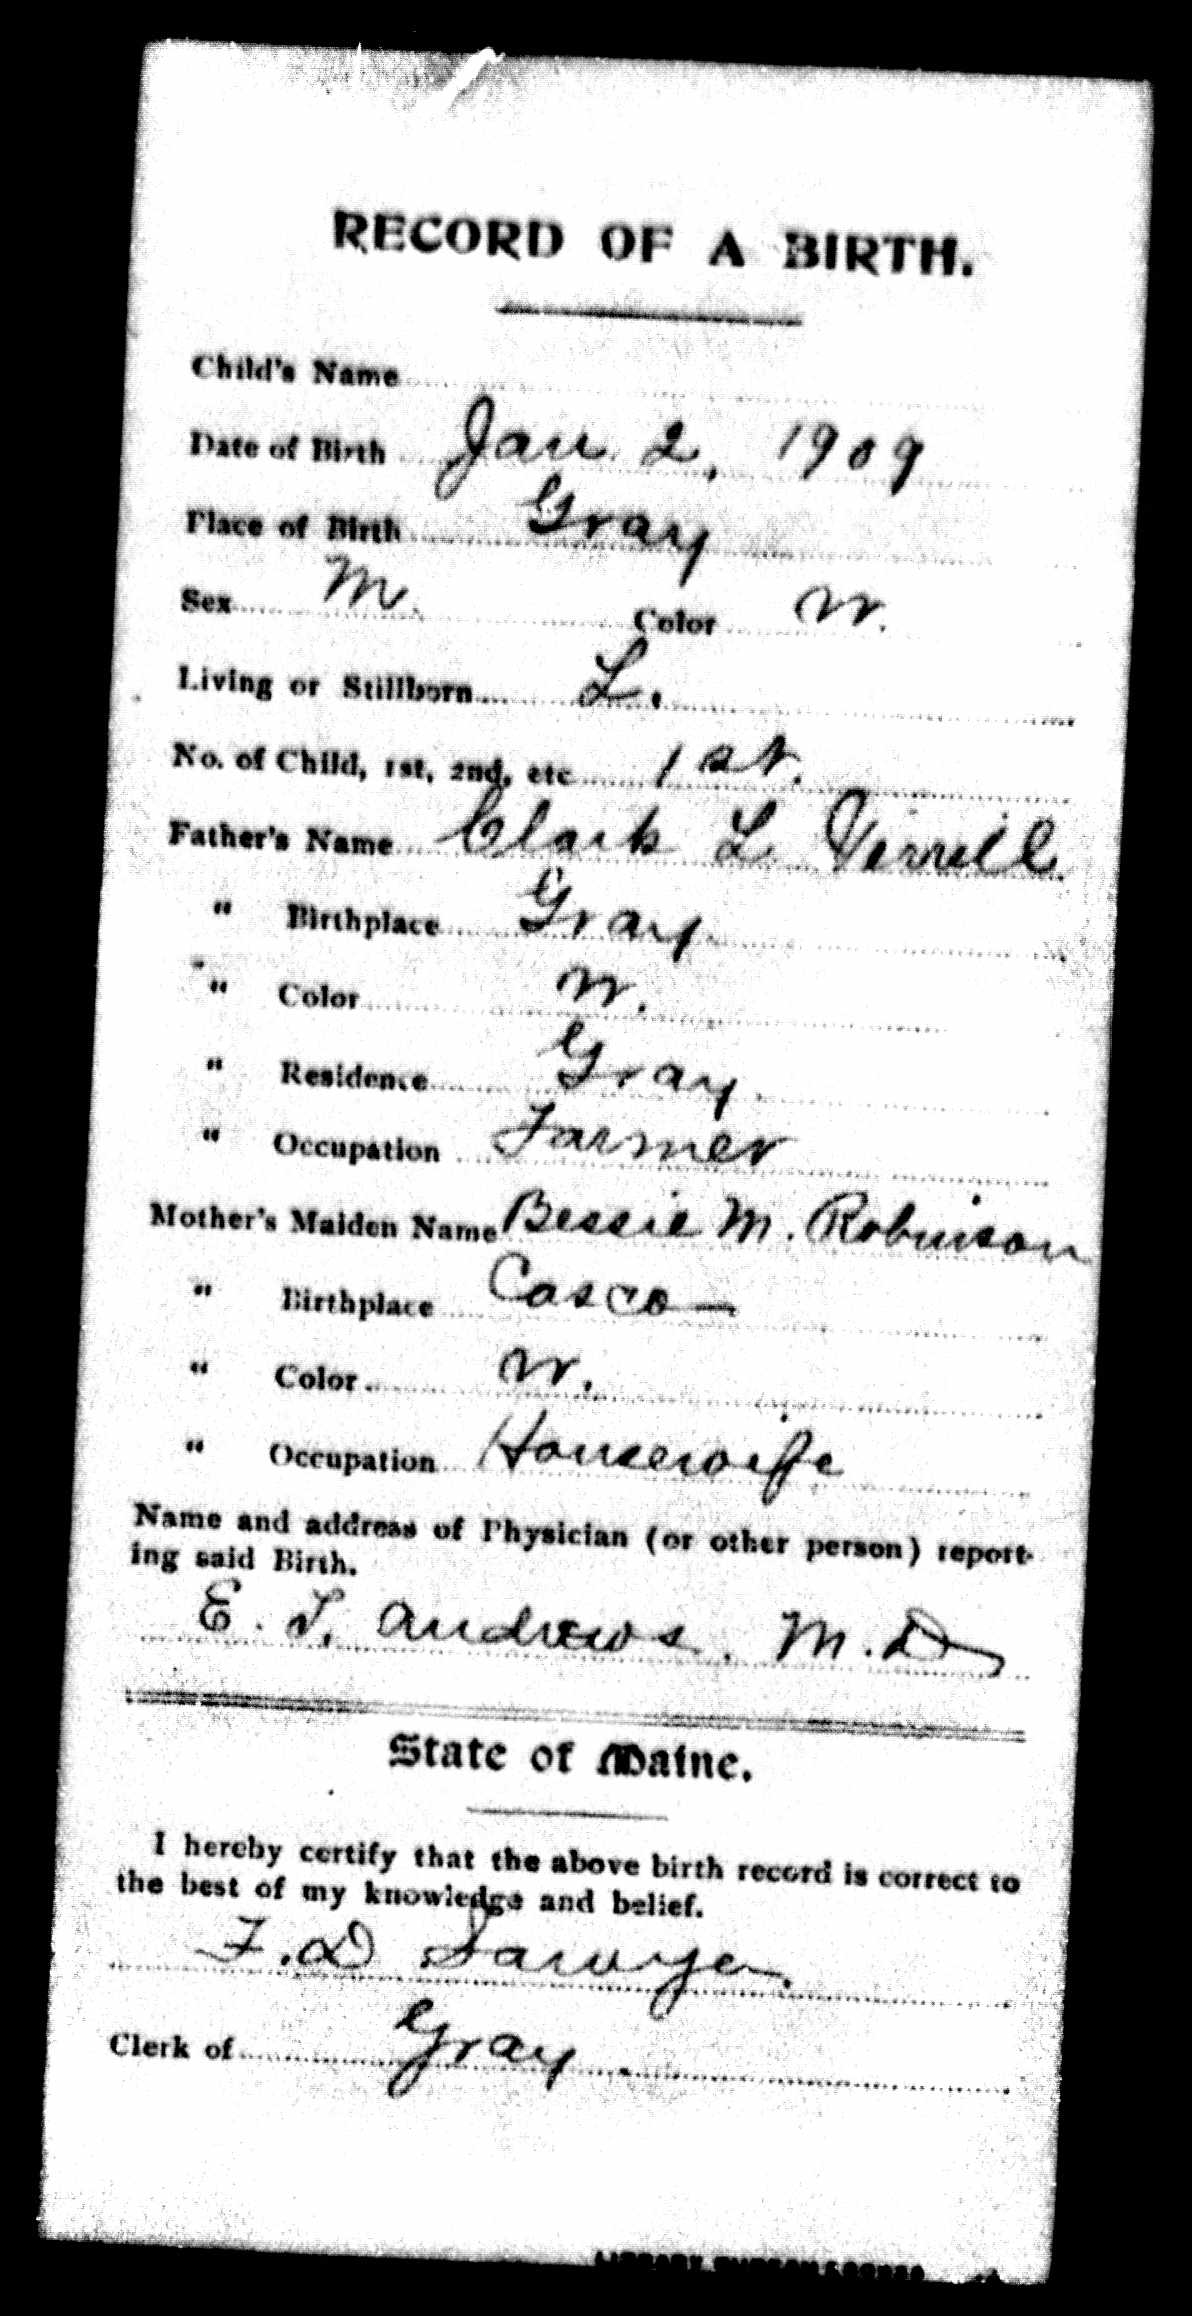 RECORD OF A BIRTH.
Child's Name
Date of Birth Jan 2, 1909
Place of Birth Gray
Sex M. Color W.
Living or Stillborn L.
No. of Child, 1st, 2nd, etc 1st.
Father's Name Clark L Verrill
" Birthplace Gray
" Color W.
" Residence Gray.
" Occupation Farmer
Mother's Maiden Name Bessie M. Robinson
" Birthplace Casco
" Color W.
" Occupation Housewife
Name and address of Physician (or other person) report-
ing said Birth.
E. T. Andrews. M.D
State of Maine.
I hereby certify that the above birth record is correct to
the best of my knowledge and belief.
F. D Sawyer.
Clerk of Gray